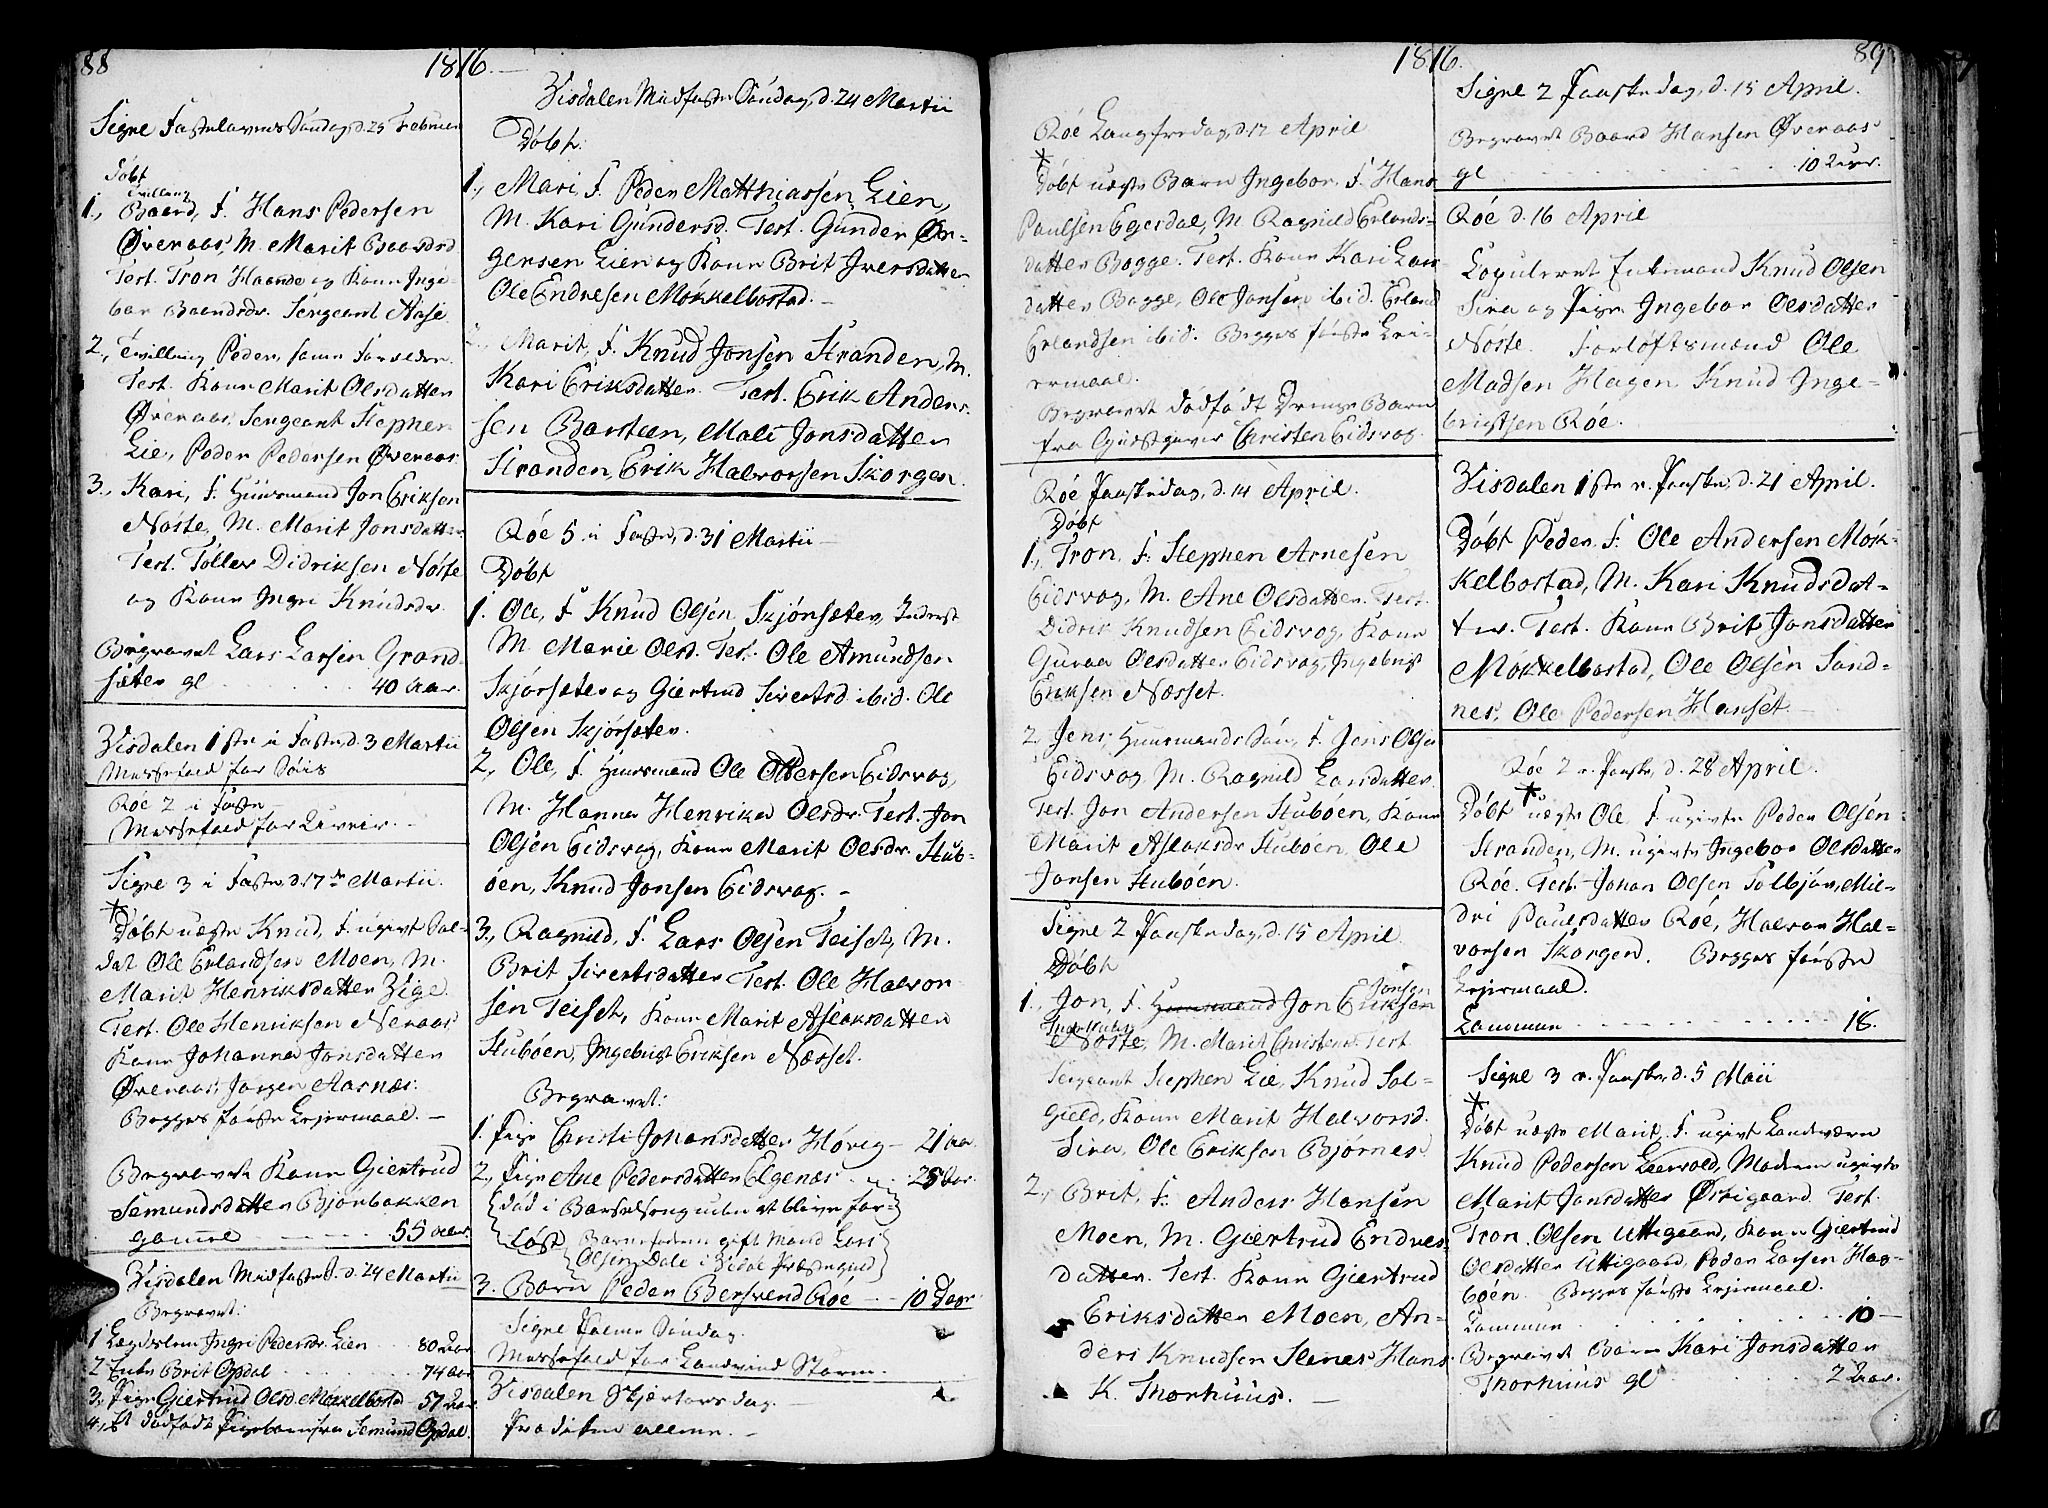 88
1816.
Signe Fastelavens Søndag, d. 25 Februar
Døbt
tvilling
1., Baard, F. Hans Pedersen
Øveraas, M. Marit Baardsd
Test. Tron Haande og Kone Inge-
bor Baardsdr. Sergeant Aase
2., Tvilling Peder, samme Forældre
Test. Kone Marit Olsdatter
Øveraas, Sergeant Stephen
Lie, Peder Pedersen Øveraas
3., Kari, F. Huusmand Jon Eriksen
Nøste, M. Marit Jonsdatter
Test. Tollev Didriksen Nøste
og Kone Ingri Knudsdr.
Begravet Lars Larsen Grand-
sæter gl. 40 aar.
Visdalen 1ste i Faste, d. 3 Martii
Messefald for Føris
Røe 2 i Faste
Messefald for
Signe 3 i Faste, d. 17de Martii.
* Døbt uægte Knud, F. ugivt Sol-
dat Ole Erlandsen Moen, M.
Marit Henriksdatter Vige
Test. Ole Henriksen Neraas
Kone Johanna Jonsdatter
Øveraas, Jørgen Aarnæs.
Begges første Lejermaal. —
Begravet Kone Giertrud
Semundsdatter Bjønbakken
gammel 55 aar.
Visdalen Midfaste S. d. 24 Martii
Begravet:
1 Lægdslem Ingri Pedersdr. Lien 80 Aar
2 Enke Brit Opdal 74 aar
3., Pige Giertrud Olsd. Møkkelbostad 57 Aar
4., Et dødfødt Pigebarn fra Semund Opdal.
Visdalen Midfaste Søndag, d. 24 Martii
Døbt:
1., Mari, F. Peder Matthiassen Lien,
M. Kari Gundersd. Test. Gunder Ør-
gensen Lien og Kone Brit Iversdatter
Ole Endresen Møkkelbostad. —
2., Marit, F. Knud Jonsen Stranden, M.
Kari Eriksdatter. Test. Erik Anders
sen Barsteen, Mali Jonsdatter
Stranden, Erik Halvorsen Skorgen.
Røe 5 i Faste, d. 31 Martii —
Døbt
1. Ole, F. Knud Olsen Skjørsæter, Inderst
M. Marie Olsd. Test. Ole Amundsen
Skjørsæter og Giertrud Sivertsd. ibid. Ole
Olsen Skjørsæter.
2., Ole, F. Huusmand Ole Ottersen Eidsvog,
M. Hanna Henrika Olsdr. Test. Jon
Olsen Eidsvog, Kone Marit Olsdr. Stub-
øen, Knud Jonsen Eidsvog. -
3., Ragnild, F. Lars Olsen Teiset, M.
Brit Sivertsdatter Test. Ole Halvor
sen Teiset, Kone Marit Aslaksdatter
Stubøen, Ingebrigt Eriksen Næsset.
Begravet:
1. Pige Christi Johansdatter Høvig — 21 aar
2., Pige Ane Pedersdatter Elgenæs 25 Aar.
død i Barselseng uden at blive for-
løst Barnefaderen gift Mand Lars
Olsen Dale i Vedøe Præstegield
3. Barn Peder Bersvend Røe 10 Dage
Signe Palme Søndag.
Messefald for Landvind Storm.
Visdalen Skjærtorsdag
Prædiken allene. —
1816.
89
Røe Langfredag, d. 12 April
* Døbt uægte Barn Ingebor, F. Hans
Paulsen Egersdal, M. Ragnild Erlands-
datter Bogge. Test. Kone Kari Lars
datter Bogge, Ole Jonsen ibid. Erland
Erlandsen ibid. Begges første Lei-
ermaal.
Begravet dødfødt Drenge Barn
fra Giæstgiver Christen Eidsvog.
Røe Paaskedag, d. 14 April.
Døbt
1., Tron, F. Stephen Arnesen
Eidsvog, M. Ane Olsdatter. Test.
Didrik Knudsen Eidsvog, Kone
Guraa Olsdatter Eidsvog, Ingebrigt
Eriksen Næsset.
2, Jens, Huusmands Søn, F. Jens Olsen
Eidsvog, M. Ragnild Larsdatter
Test. Jon Andersen Stubøen, Kone
Marit Aslaksdr Stubøen, Ole
Jonsen Stubøen.
Signe 2 Paaskedag, d. 15 April.
Døbt
1., Jon, F. Huusmand Jon Eriksen Jonsen
Nøste, M. Marit Christensd. Test
Sergeant Stephen Lie, Knud Sol-
gield, Kone Marit Halvorsd.
Sira, Ole Eriksen Bjørnes
2., Brit, F. Anders Hansen
Moen, M. Giertrud Endres-
datter. Test. Kone Giertrud
Eriksdatter Moen, An-
ders Knudsen Stenes Hans
K. Thorhuus. —
Signe 2 Paaskedag, d. 15 April.
Begravet Baard Hansen Øveraas
gl 10 Uger.
Røe d. 16 April
Copuleret Enkemand Knud Olsen
Sira og Pige Ingebor Olsdatter
Nøste. Forløftsmænd Ole
Madsen Hagen Knud Inge-
brigtsen Røe.
Visdalen 1ste e. Paaske, d. 21 April.
Døbt Peder, F. Ole Andersen Møk-
kelbostad, M. Kari Knudsdat-
ter. Test. Kone Brit Jonsdatter
Møkkelbostad, Ole Olsen Sand-
nes, Ole Pedersen Hanset. —
Røe 2 e. Paaske, d. 28 April.
* Døbt uægte Ole, F. ugivte Peder Olsen
Stranden, M. ugivte Ingebor Olsdatter
Røe. Test. Johan Olsen Tolbjør, Mil-
dri Paulsdatter Røe, Halvor Hal-
vorsen Skorgen. Begges første
Lejermaal.
Commun 18.
Signe 3 e. Paaske, d. 5 Maii
* Døbt uægte Marit, F. ugivt Landværn
Knud Pedersen Leervold, Moderen ugivte
Marit Jonsdatter Østigaard. Test.
Tron Olsen Uttigaard, Kone Giertrud
Olsdatter Uttigaard, Peder Larsen Hag-
bøen. Begges første Lejermaal.
Commun 10 —
Begravet Barn Kari Jonsdatter
Thorhuus gl 2 Aar.